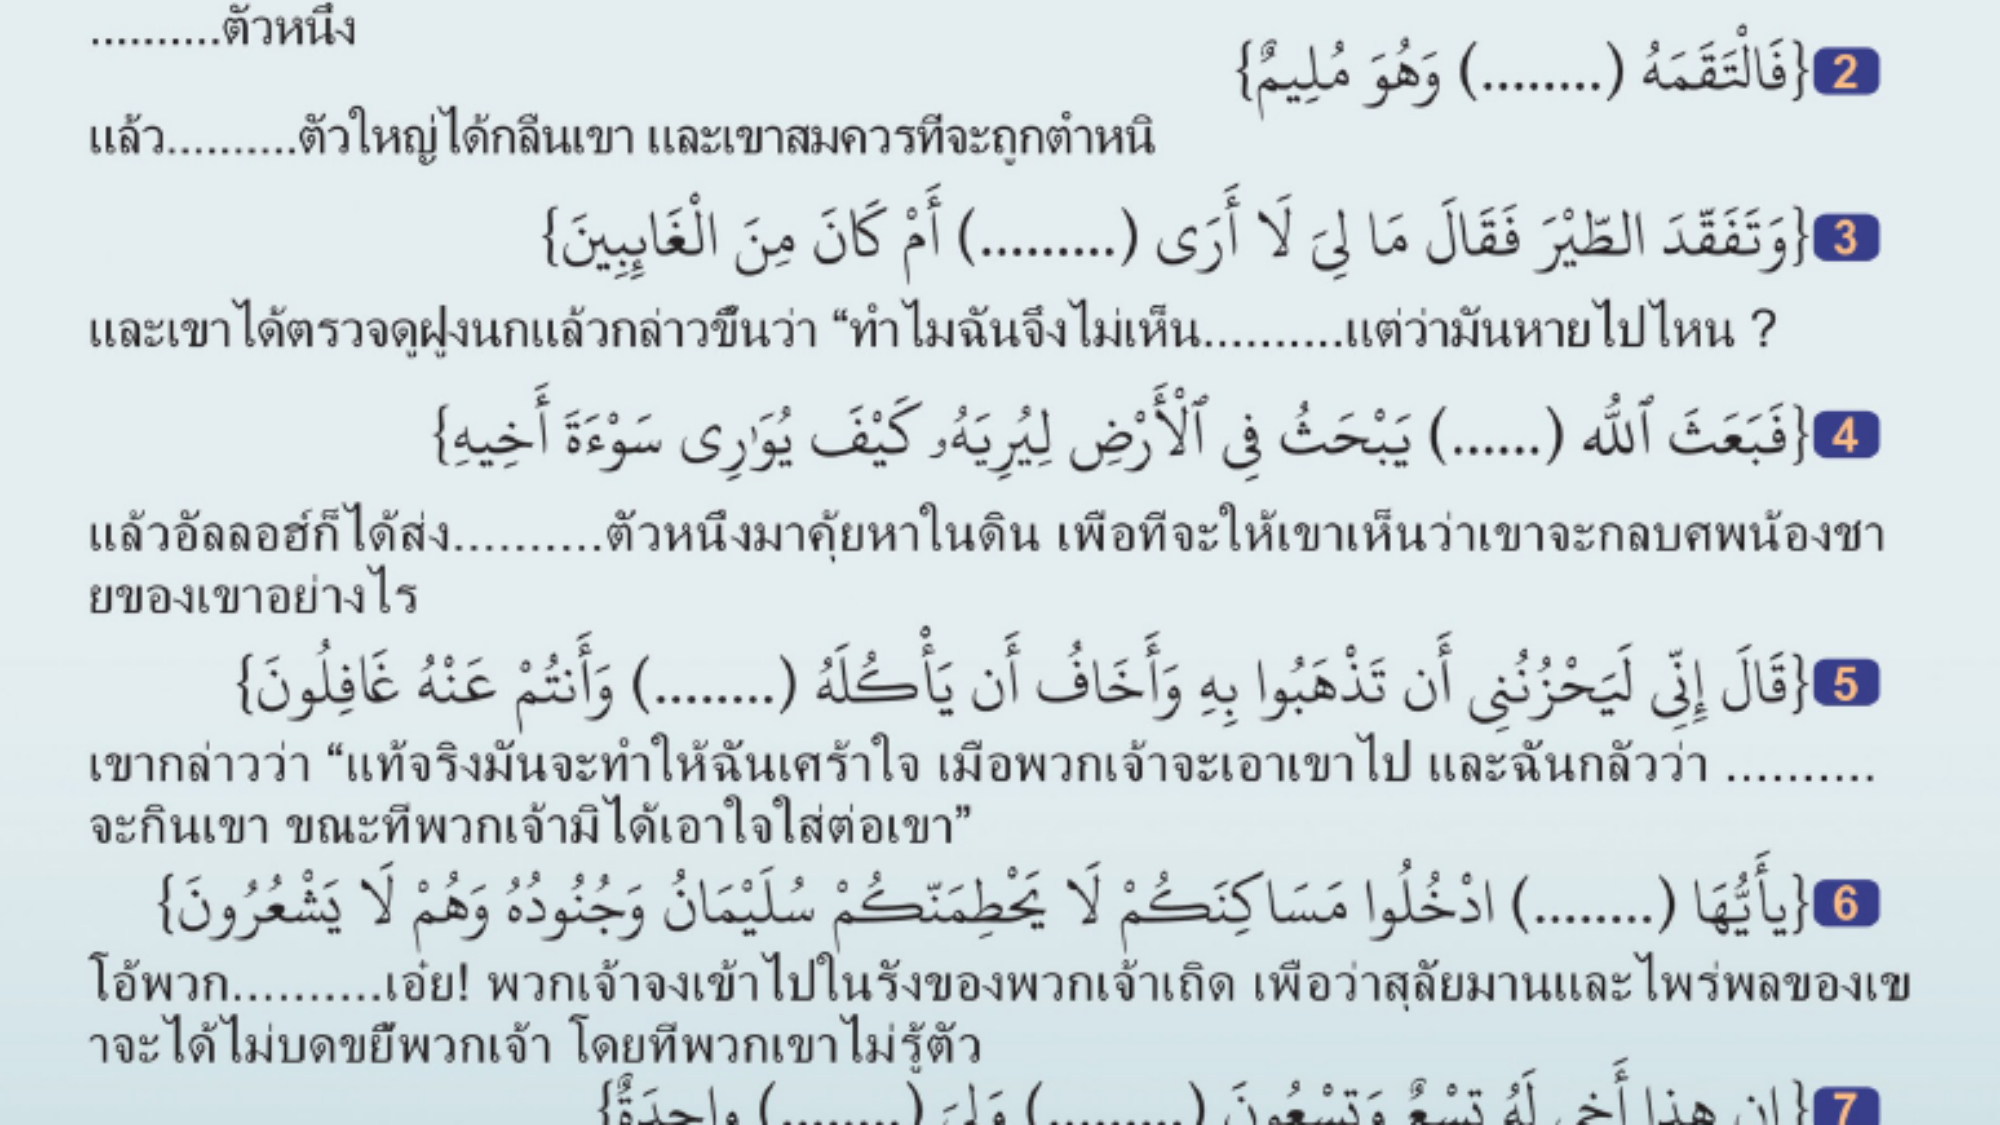 ..........ตัวหนึ่ง
2 {فَالْتَقَمَهُ (........) وَهُوَ مُلِيمٌ}
แล้ว..........ตัวใหญ่ได้กลืนเขา และเขาสมควรที่จะถูกตำหนิ
3 {وَتَفَقَّدَ الطَّيْرَ فَقَالَ مَا لِيَ لَا أَرَى (.........) أَمْ كَانَ مِنَ الْغَايِبِينَ}
และเขาได้ตรวจดูฝูงนกแล้วกล่าวขึ้นว่า “ทำไมฉันจึงไม่เห็น..........แต่ว่ามันหายไปไหน ?
4 {فَبَعَثَ ٱللَّه (......) يَبْحَثُ فِى ٱلْأَرْضِ لِيُرِيَهُۥ كَيْفَ يُوَٰرِى سَوْءَةَ أَخِيهِ}
แล้วอัลลอฮ์ก็ได้ส่ง..........ตัวหนึ่งมาคุ้ยหาในดิน เพื่อที่จะให้เขาเห็นว่าเขาจะกลบศพน้องชา
ยของเขาอย่างไร
5 {قَالَ إِنِّى لَيَحْزُنُنِى أَن تَذْهَبُوا بِهِ وَأَخَافُ أَن يَأْكُلَهُ (........) وَأَنتُمْ عَنْهُ غَافِلُونَ}
เขากล่าวว่า “แท้จริงมันจะทำให้ฉันเศร้าใจ เมื่อพวกเจ้าจะเอาเขาไป และฉันกลัวว่า ..........
จะกินเขา ขณะที่พวกเจ้ามิได้เอาใจใส่ต่อเขา”
6 {يأَيُّهَا (........) ادْخُلُوا مَسَاكِنَكُمْ لَا يَحْطِمَنَّكُمْ سُلَيْمَانُ وَجُنُودُهُ وَهُمْ لَا يَشْعُرُونَ}
โอ้พวก..........เอ๋ย! พวกเจ้าจงเข้าไปในรังของพวกเจ้าเถิด เพื่อว่าสุลัยมานและไพร่พลของเข
าจะได้ไม่บดขยี้พวกเจ้า โดยที่พวกเขาไม่รู้ตัว
7 {إن هذا أَخِي لَهُ تِسْعٌ وَتِسْعُونَ (.........) وَلِيَ (........) واحِدَةٌ}